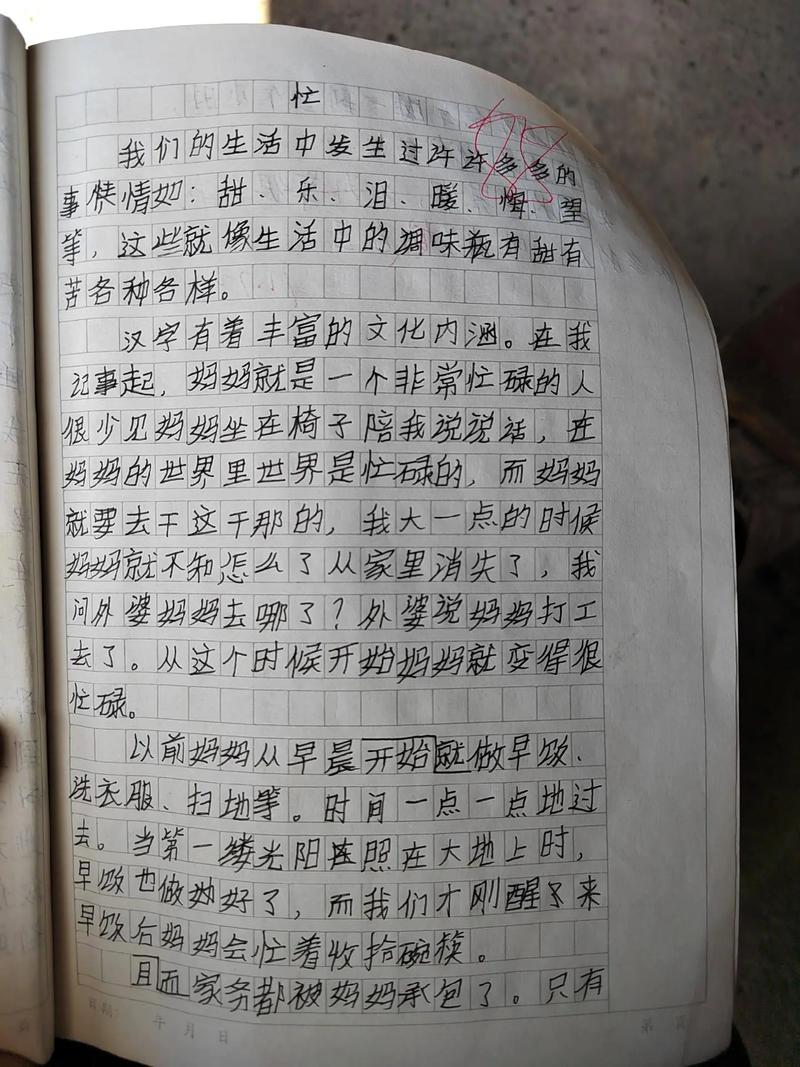 忙
我们的生活中发生过许许多多的
事情如：甜、乐、泪、暖、悔、望
等，这些就像生活中的调味瓶有甜有
苦各种各样。
汉字有着丰富的文化内涵。在我
记事起，妈妈就是一个非常忙碌的人
很少见妈妈坐在椅子陪我说说话，在
妈妈的世界里世界是忙碌的，而妈妈
就要去干这干那的，我大一点的时候
妈妈就不知怎么了从家里消失了，我
问外婆妈妈去哪了？外婆说妈妈打工
去了。从这个时候开始妈妈就变得很
忙碌。
以前妈妈从早晨开始就做早饭、
洗衣服、扫地等。时间一点一点地过
去。当第一缕光阳照在大地上时，
早饭也做好了，而我们才刚醒来
早饭后妈妈会忙着收拾碗筷。
且而家务都被妈妈承包了。只有
日期： 年 月 日
第 页